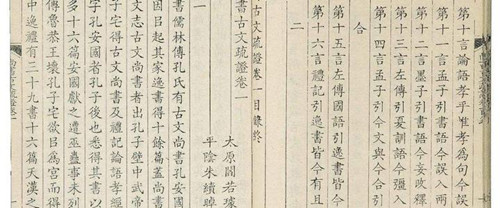 第十言論語孝乎惟孝為句今誤
第十一言孟子引書語今誤入兩
第十二言墨子引書語今妄改釋
第十三言左傳引夏訓語今彊入
第十四言孟子引今文與今合引
合
第十五言左傳國語引逸書皆今
第十六言禮記引逸書皆今有且
二
古文疏證卷一目錄終
書古文疏證卷一
太原閻若璩
平陰朱續晫
一
書儒林傳孔氏有古文尚書孔安國
因㠯起其家逸書得十餘篇蓋尚書
文志古文尚書者出孔子壁中武帝
子宅得古文尚書及禮記論語孝經
字孔安國者孔子後也悉得其書以
多十六篇安國獻之遭巫蠱事未列
傳魯恭王壞孔子宅欲㠯為宮而得
中逸禮有三十九書十六篇天漢之